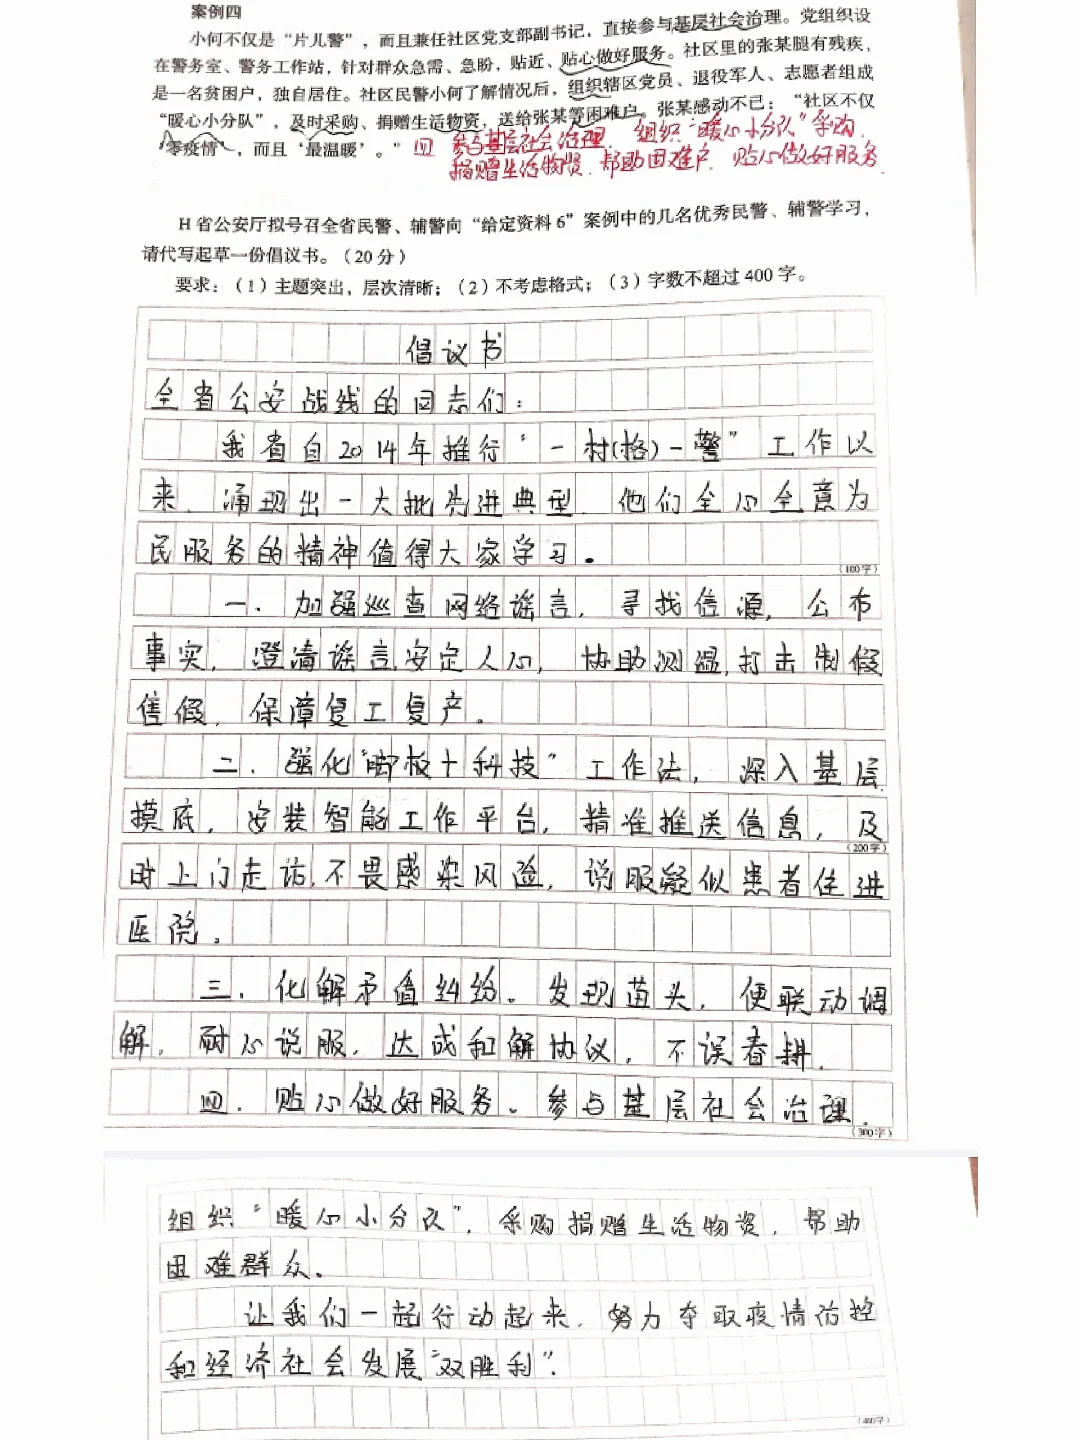 案例四
小何不仅是“片儿警”，而且兼任社区党支部副书记，直接参与基层社会治理。党组织设
在警务室、警务工作站，针对群众急需、急盼，贴近、贴心做好服务。社区里的张某腿有残疾，
是一名贫困户，独自居住。社区民警小何了解情况后，组织辖区党员、退役军人、志愿者组成
“暖心小分队”，及时采购、捐赠生活物资，送给张某等困难户。张某感动不已：“社区不仅
‘零疫情’，而且‘最温暖’。”
四 参与基层社会治理. 组织“暖心小分队”采购.
捐赠生活物资. 帮助困难户. 贴心做好服务
H省公安厅拟号召全省民警、辅警向“给定资料6”案例中的几名优秀民警、辅警学习，
请代写起草一份倡议书。（20分）
要求：（1）主题突出，层次清晰；（2）不考虑格式；（3）字数不超过400字。
倡议书
全省公安战线的同志们：
我省自2014年推行“一村(格)一警”工作以
来，涌现出一大批先进典型，他们全心全意为
民服务的精神值得大家学习。
（100字）
一．加强巡查网络谣言，寻找信源，公布
事实，澄清谣言，安定人心，协助测温，打击制假
售假，保障复工复产。
二．强化“脚板十科技”工作法，深入基层
摸底，安装智能工作平台，精准推送信息，及
（200字）
时上门走访，不畏感染风险，说服疑似患者住进
医院。
三．化解矛盾纠纷。发现苗头，便联动调
解，耐心说服，达成和解协议，不误春耕．
四．贴心做好服务。参与基层社会治理，
（300字）
组织“暖心小分队”，采购捐赠生活物资，帮助
困难群众。
让我们一起行动起来，努力夺取疫情防控
和经济社会发展“双胜利”．
（400字）